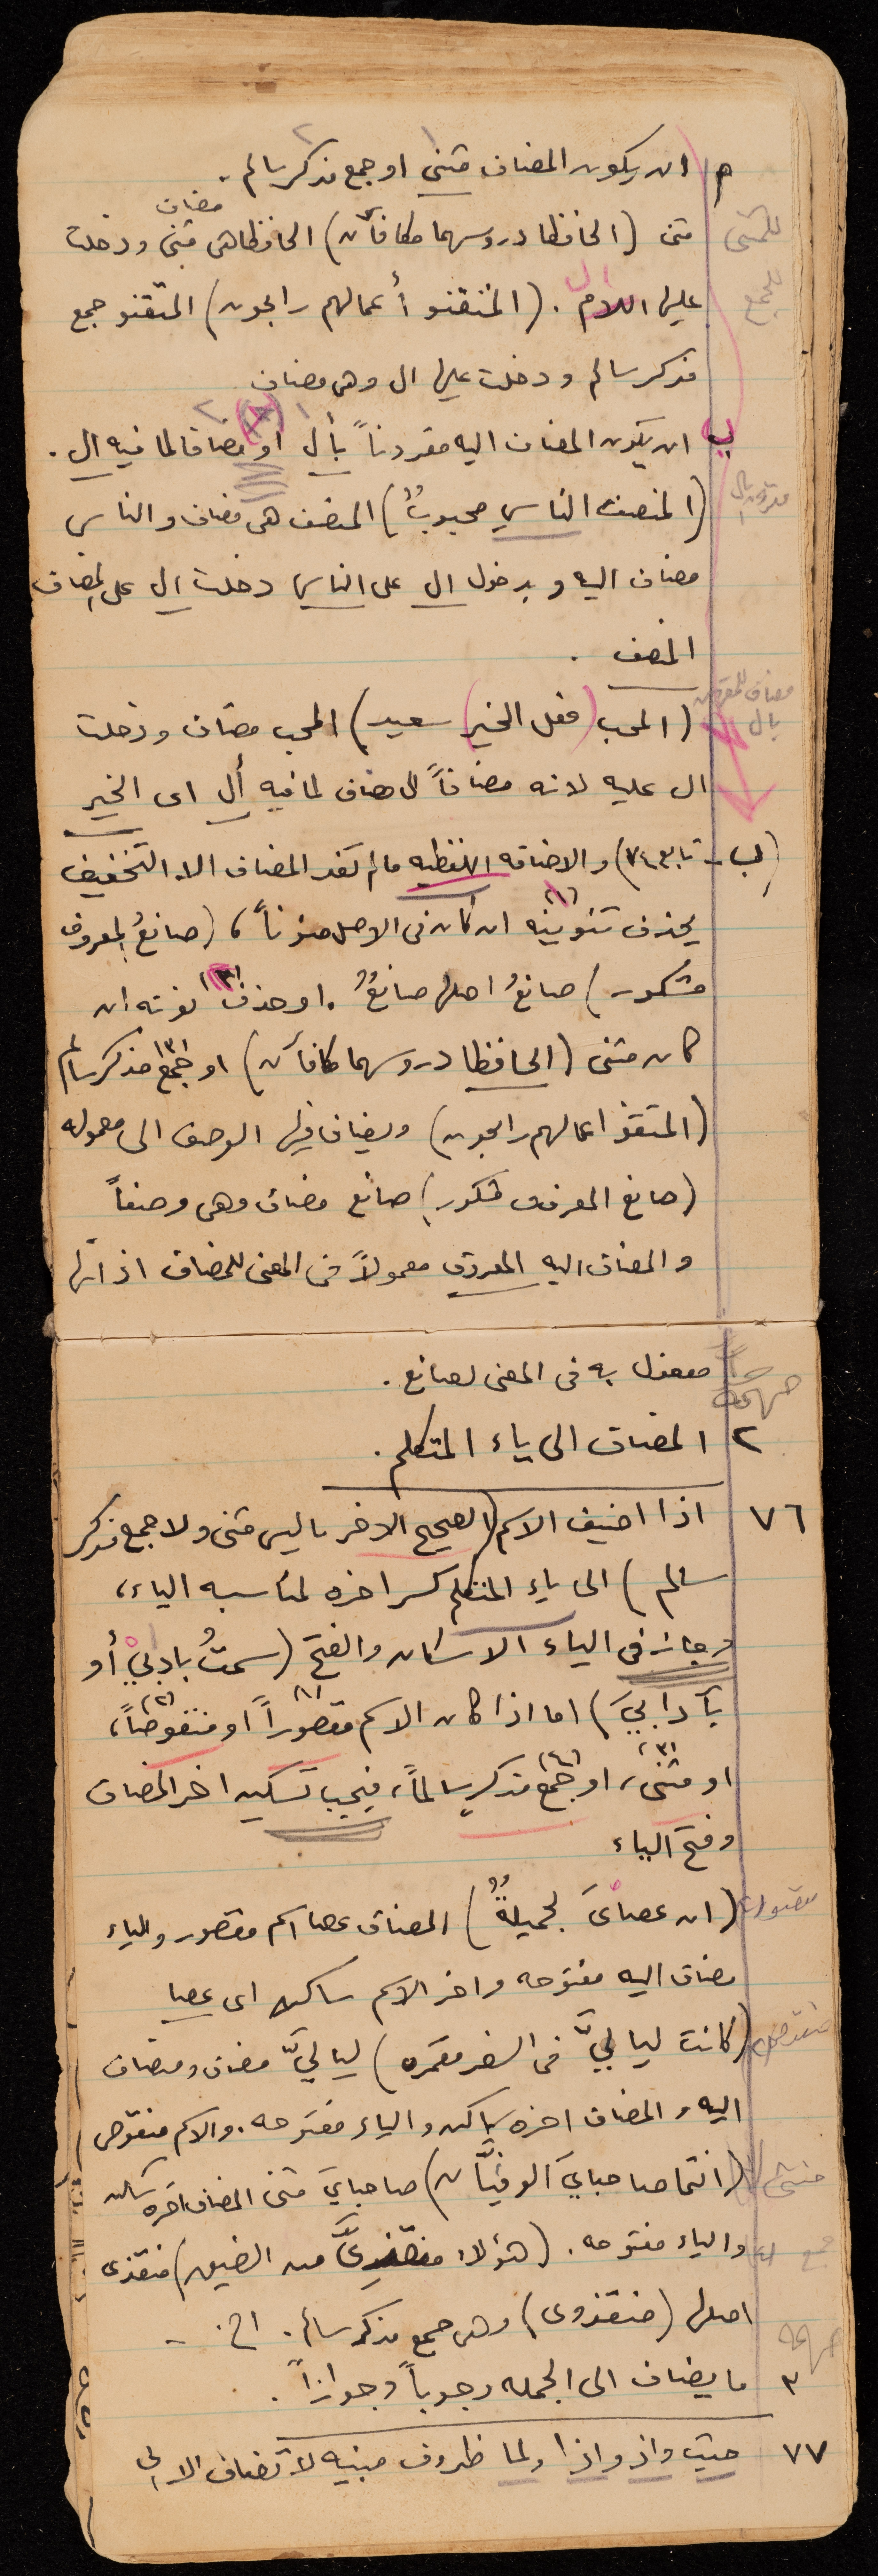 م ان يكون المضاف مثنى او جمع مذكر سالم .
للمثنى مثنى (الحافظا دروسهما مكافآن) الحافظا هى مثنى مضاف ودخلت
للجمع عليها اللام ال . (المتقنو أعمالهم رابحون) المتقنو جمع
مذكر سالم ودخلت عليها ال وهى مضاف
ب ان يكون المضاف اليه مقروناً بأل او مضافا لما فيه ال .
مقرون بال (المنصف الناسِ محبوبٌ) المنصف هى مضاف والناس
مضاف اليه وبدخول ال على الناس دخلت ال على المضاف
المنصف .
مضاف للمقرون بال (المحب فعل الخير سعيد) المحب مضاف ودخلت
ال عليه لانه مضافاً الى مضاف لما فيه أل اى الخير
(ب - تابع ٧٤) والاضافه اللفظيه مالم تفد المضاف الا التخفيف
بحذف تنوينه (١) ان كان فى الاصل منوناً، (صانعُ المعروف
مشكور) صانعُ اصلها صانعٌ . او حذف (٢) نونه ان
كان مثنى (الحافظا دروسهما مكافآن) او جمع (٣) مذكر سالم
(المتقنو اعمالهم رابحون) ويضاف فيها الوصف الى معموله
(صانع المعروف مشكور) صانع مضاف وهى وصفاً
والمضاف اليه المعروف معمولاً فى المعنى للمضاف اذ انها
مفعول به فى المعنى لصانع .
٢ المضاف الى ياء المتكلم .
٧٦ اذا اضيف الاسم (الصحيح الاخر ما ليس مثنى ولا جمع مذكر
سالم) الى ياء المتكلم كسر اخره لمناسبه الياء،
وجاز فى الياء الاسكان والفتح (سمتُ بادابيْ أو
بآدابيَ) اما اذا كان الاسم مقصوراً (١) او منقوصاً (٢)،
او مثنى (٣)، او جمع (٤) مذكر سالماً، فيجب تسكين اخر المضاف
وفتح الياء
مقصور (ان عصاىَ لجميلةٌ) المضاف عصا اسم مقصور والياء
مضاف اليه مفتوحه واخر الاسم ساكن اى عصا
منقوص (كانت لياليَّ فى السفر مقمره) لياليَّ مضاف ومضاف
اليه والمضاف اخره ساكن والياء مفتوحه . والاسم منقوص
مثنى (انتما صاحبايَ الوفيَّان) صاحبايَ مثنى المضاف اخره ساكن
جمع والياء مفتوحه . (هؤلاء منقذىَّ من الضيق) منقذى
اصلها (منقذوى) وهى جمع مذكر سالم . الخ . -
٣ ما يضاف الى الجمله وجوباً وجوازاً .
٧٧ حيث واذ واذا ولما ظروف مبنيه لا تضاف الا الى